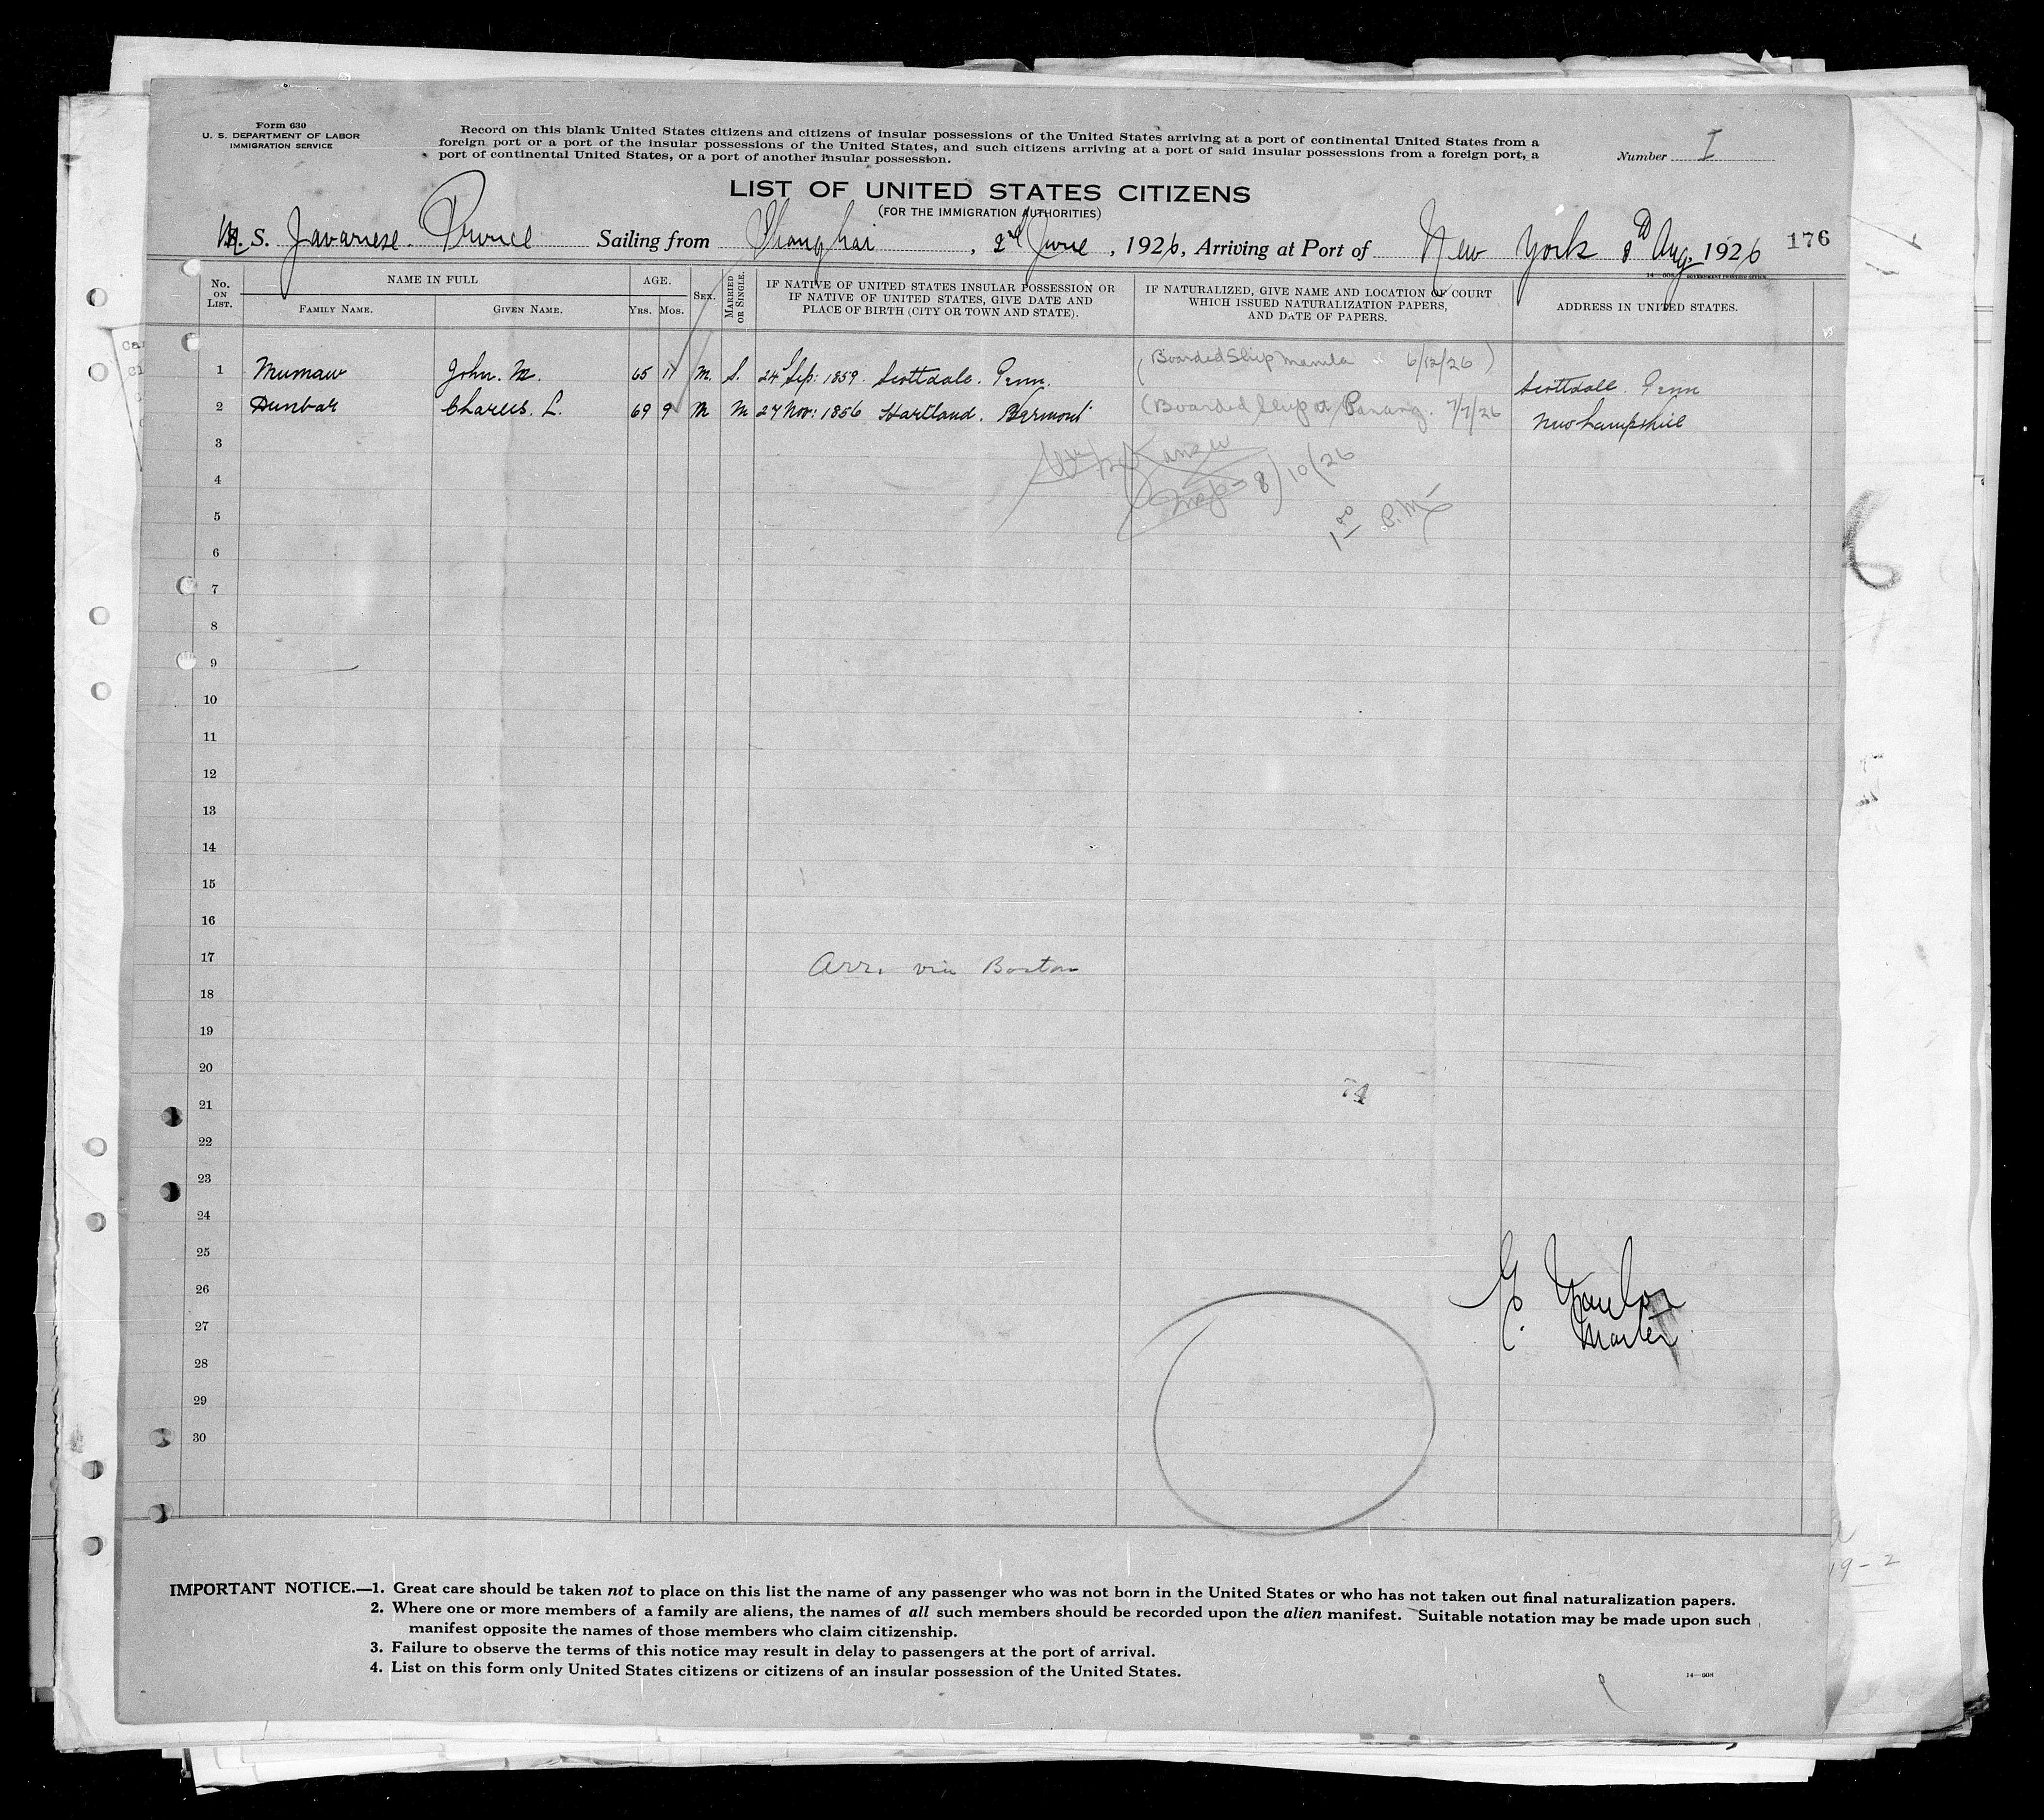 Form 630
U. S. DEPARTMENT OF LABOR
IMMIGRATION SERVICE
Record on this blank United States citizens and citizens of insular possessions of the United States arriving at a port of continental United States from a
foreign port or a port of the insular possessions of the United States, and such citizens arriving at a port of said insular possessions from a foreign port, a
port of continental United States, or a port of another insular possession.
Number I
LIST OF UNITED STATES CITIZENS
(FOR THE IMMIGRATION AUTHORITIES)
M. S. Javanese Prince Sailing from Shanghai, 2nd June, 1926, Arriving at Port of New York 8th Aug. 1926 176
14—608 GOVERNMENT PRINTING OFFICE
No. ON LIST. NAME IN FULL AGE. SEX. MARRIED OR SINGLE. IF NATIVE OF UNITED STATES INSULAR POSSESSION OR IF NATIVE OF UNITED STATES, GIVE DATE AND PLACE OF BIRTH (CITY OR TOWN AND STATE). IF NATURALIZED, GIVE NAME AND LOCATION OF COURT WHICH ISSUED NATURALIZATION PAPERS, AND DATE OF PAPERS. ADDRESS IN UNITED STATES.
FAMILY NAME. GIVEN NAME. YRS. MOS.
1 Mumaw John. M. 65 11 M. S. 24 Sep: 1859. Scottdale. Penn. (Boarded Ship Manila 6/12/26) Scottdale. Penn
2 Dunbar Charles. L. 69 9 M M 27 Nov: 1856 Hartland. Vermont (Boarded Ship at Penang. 7/7/26 New Hampshire
3
4
Insp 8/10/26
5
1 00 P.M.
6
7
8
9
10
11
12
13
14
15
16
17 Arr. via Boston
18
19
20
21
74
22
23
24
25
26
27 Master
28
29
30
IMPORTANT NOTICE.—1. Great care should be taken not to place on this list the name of any passenger who was not born in the United States or who has not taken out final naturalization papers.
2. Where one or more members of a family are aliens, the names of all such members should be recorded upon the alien manifest. Suitable notation may be made upon such
manifest opposite the names of those members who claim citizenship.
3. Failure to observe the terms of this notice may result in delay to passengers at the port of arrival.
4. List on this form only United States citizens or citizens of an insular possession of the United States.
14—608
19-2